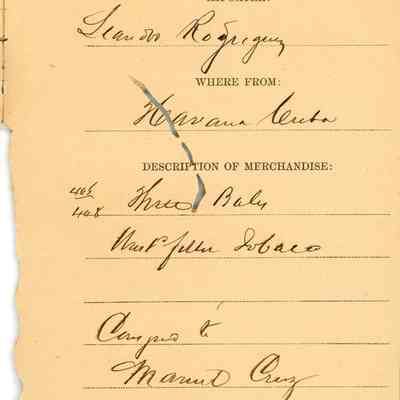 Leandro Rodriguez
WHERE FROM:
Havana Cuba
DESCRIPTION OF MERCHANDISE:
406
408 Three Bales
filler Tobaco
Consgned to
Manuel Cruz